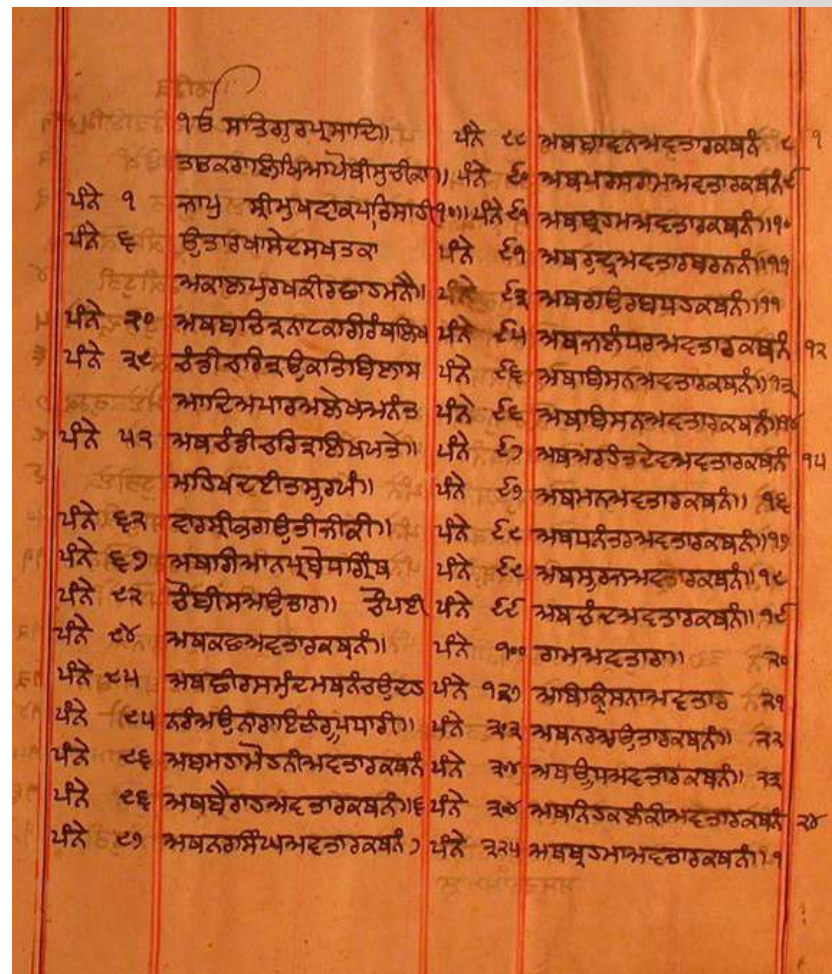 ੧ੳ ਸਤਿਗੁਰਪ੍ਰਸਾਦਿ॥
ਤਤਕਰਾਲਿਖਿਆਪੋਥੀਸੁਚੀਕਾ॥
ਪੰਨੇ ੧ ਜਾਪੁ ਸ੍ਰੀਮੁਖਵਾਕਪਾਤਿਸਾਹੀ੧੦॥
ਪੰਨੇ ੬ ਉਤਾਰਖਾਸੇਦਸਖਤਕਾ
ਅਕਾਲਪੁਰਖਕੀਰਛਾਹਮਨੈ॥
ਪੰਨੇ ੨੦ ਅਥਬਚਿਤ੍ਰਨਾਟਕ
ਪੰਨੇ ੩੯ ਚੰਡੀਚਰਿਤ੍ਰਉਕਤਿਬਿਲਾਸ
ਆਦਿਅਪਾਰਅਲੇਖਅਨੰਤ
ਪੰਨੇ ੫੨ ਅਥਚੰਡੀਚਰਿਤ੍ਰਲਿਖਯਤੇ॥
ਮਹਿਖਦਈਤਸੂਰਯੰ॥
ਪੰਨੇ ੬੨ ਵਾਰਸ੍ਰੀਭਗਉਤੀਜੀਕੀ॥
ਪੰਨੇ ੬੭ ਅਥਗਿਆਨਪ੍ਰਬੋਧਗ੍ਰਿੰਥ
ਪੰਨੇ ੮੨ ਚੌਬੀਸਅਉਤਾਰ॥ ਚੌਪਈ
ਪੰਨੇ ੮੪ ਅਥਕਛਅਵਤਾਰਕਥਨੰ॥
ਪੰਨੇ ੮੫ ਅਥਛੀਰਸਮੁੰਦਮਥਨੰਚਉਦਹ
ਪੰਨੇ ੮੫ ਨਰੰਅਉਨਰਾਇਣੰਰੂਪਧਾਰੀ॥
ਪੰਨੇ ੮੬ ਅਥਮਹਾਮੋਹਨੀਅਵਤਾਰਕਥਨੰ
ਪੰਨੇ ੮੬ ਅਥਬੈਰਾਹਅਵਤਾਰਕਥਨੰ॥੬
ਪੰਨੇ ੮੭ ਅਥਨਰਸਿੰਘਅਵਤਾਰਕਥਨੰ੭
ਪੰਨੇ ੮੮ ਅਥਬਾਵਨਅਵਤਾਰਕਥਨੰ ੮
ਪੰਨੇ ੯੦ ਅਥਪਰਸਰਾਮਅਵਤਾਰਕਥਨੰ੯
ਪੰਨੇ ੯੧ ਅਥਬ੍ਰਹਮਅਵਤਾਰਕਥਨੰ॥੧੦
ਪੰਨੇ ੯੧ ਅਥਰੁਦ੍ਰਅਵਤਾਰਬਰਨਨੰ॥੧੧
ਪੰਨੇ ੯੩ ਅਥਗਉਰਬਧਹਕਥਨੰ॥੧੧
ਪੰਨੇ ੯੫ ਅਥਜਲੰਧਰਅਵਤਾਰਕਥਨੰ ੧੨
ਪੰਨੇ ੯੬ ਅਥਬਿਸਨਅਵਤਾਰਕਥਨੰ॥੧੩
ਪੰਨੇ ੯੬ ਅਥਬਿਸਨਅਵਤਾਰਕਥਨੰ॥੧੪
ਪੰਨੇ ੯੭ ਅਥਅਰਹੰਤਦੇਵਅਵਤਾਰਕਥਨੰ ੧੫
ਪੰਨੇ ੯੭ ਅਥਮਨਅਵਤਾਰਕਥਨੰ॥ ੧੬
ਪੰਨੇ ੯੮ ਅਥਧਨੰਤਰਅਵਤਾਰਕਥਨੰ॥੧੭
ਪੰਨੇ ੯੮ ਅਥਸੂਰਜਅਵਤਾਰਕਥਨੰ॥੧੮
ਪੰਨੇ ੯੯ ਅਥਚੰਦਅਵਤਾਰਕਥਨੰ॥੧੯
ਪੰਨੇ ੧੦੦ ਰਾਮਅਵਤਾਰ॥ ੨੦
ਪੰਨੇ ੧੨੭ ਅਥਕ੍ਰਿਸਨਾਅਵਤਾਰ ੨੧
ਪੰਨੇ ੩੨੩ ਅਥਨਰਅਉਤਾਰਕਥਨੰ॥ ੨੨
ਪੰਨੇ ੩੨੪ ਅਥਬਉਧਅਵਤਾਰਕਥਨੰ॥ ੨੩
ਪੰਨੇ ੩੨੪ ਅਥਨਿਹਕਲੰਕੀਅਵਤਾਰਕਥਨੰ ੨੪
ਪੰਨੇ ੩੩੫ ਅਥਬ੍ਰਹਮਾਅਵਤਾਰਕਥਨੰ॥੧